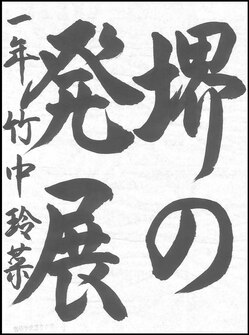 堺の
発展
一年 竹中玲菜